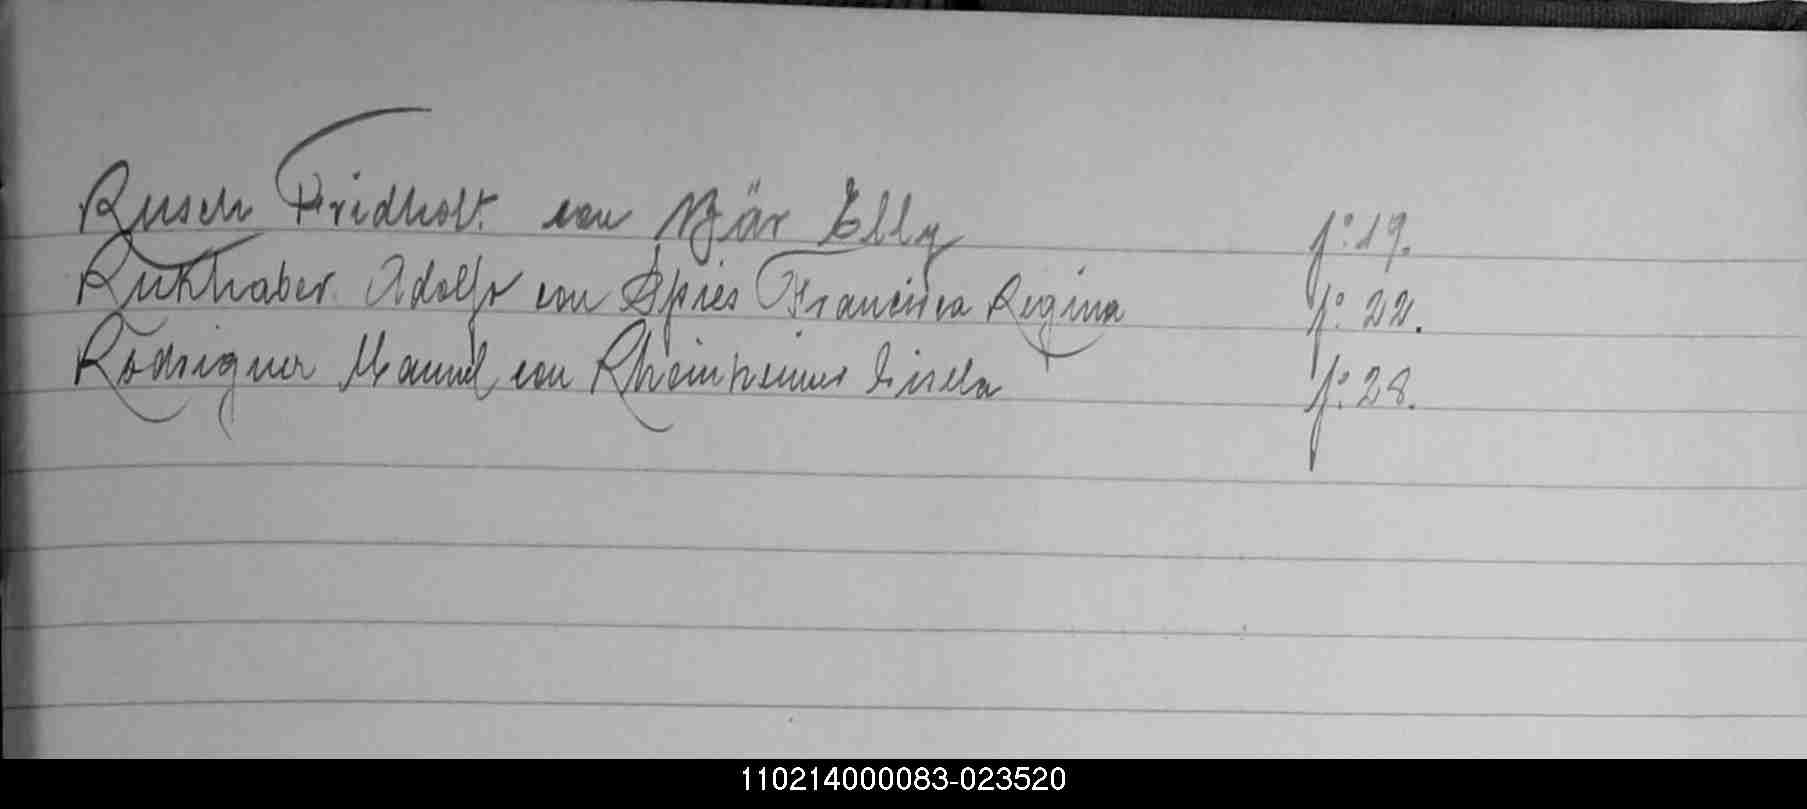 Rusch Fridholt. con Bär Elly fº 19.
Rükhaber Adolfo con Spies Francisca Regina fº 22.
Rodriguez Manuel con Rheinheimer Gisela fº 28.
110214000083-023520